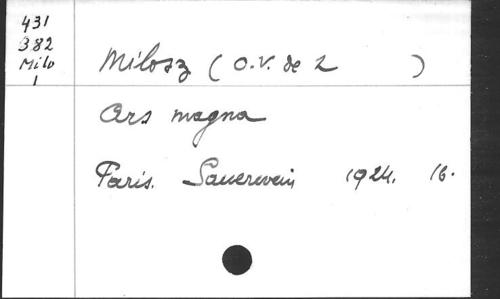 431
B82
Milo
1
Milosz (O.V. de L )
Ars magna
Paris. Sauerwein 1924. 16.